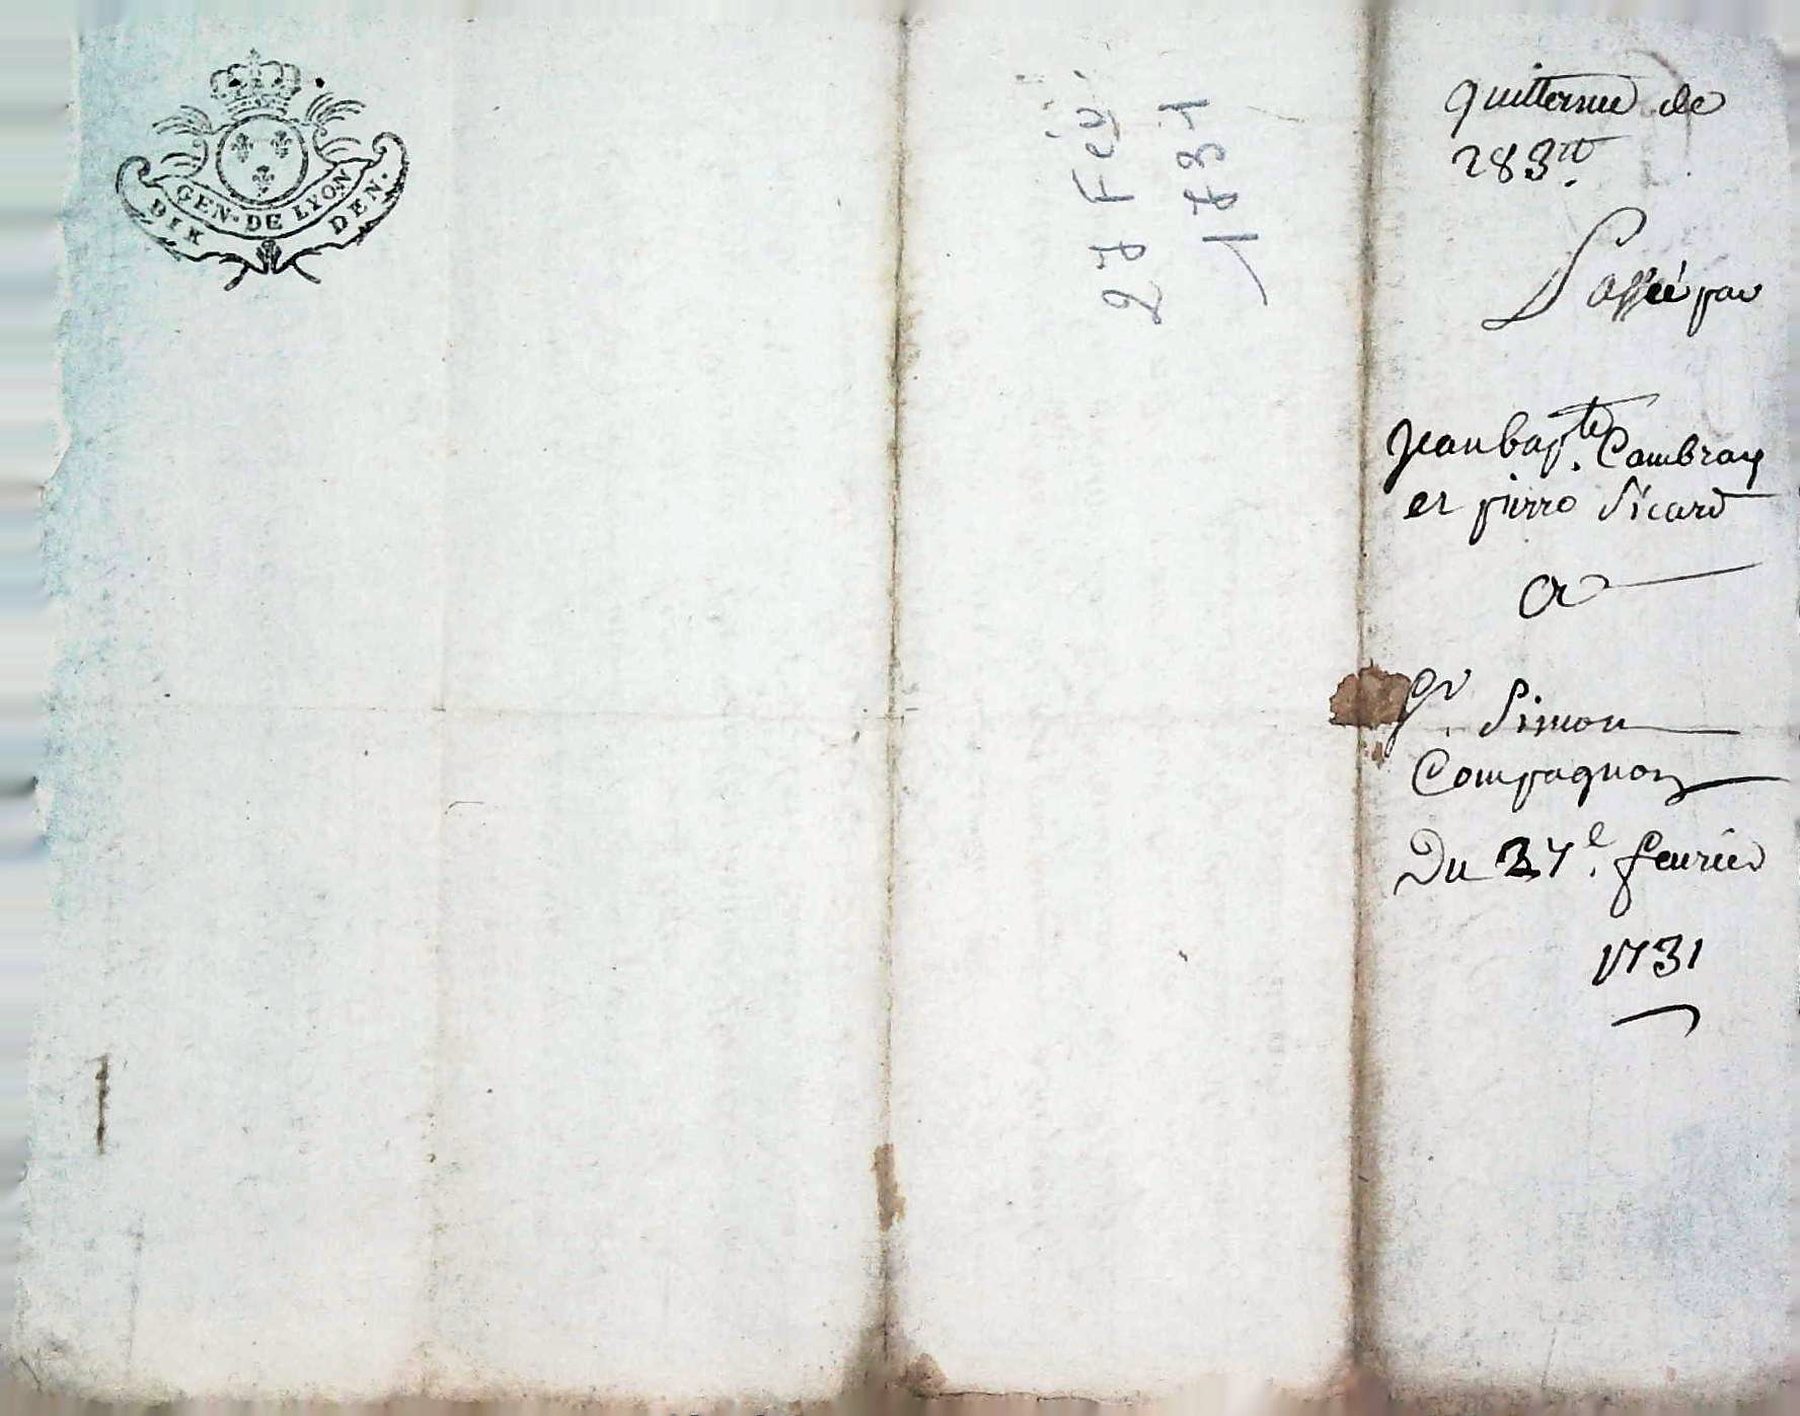 GEN. DE LYON
DIX DEN.
27 Fev.
1731
quittance de
283tt.
Passée par
Jean bapte. Cambray
et pierre Sicard
a
Sr. Simon
Compagnon
Du 27e. feurier
1731